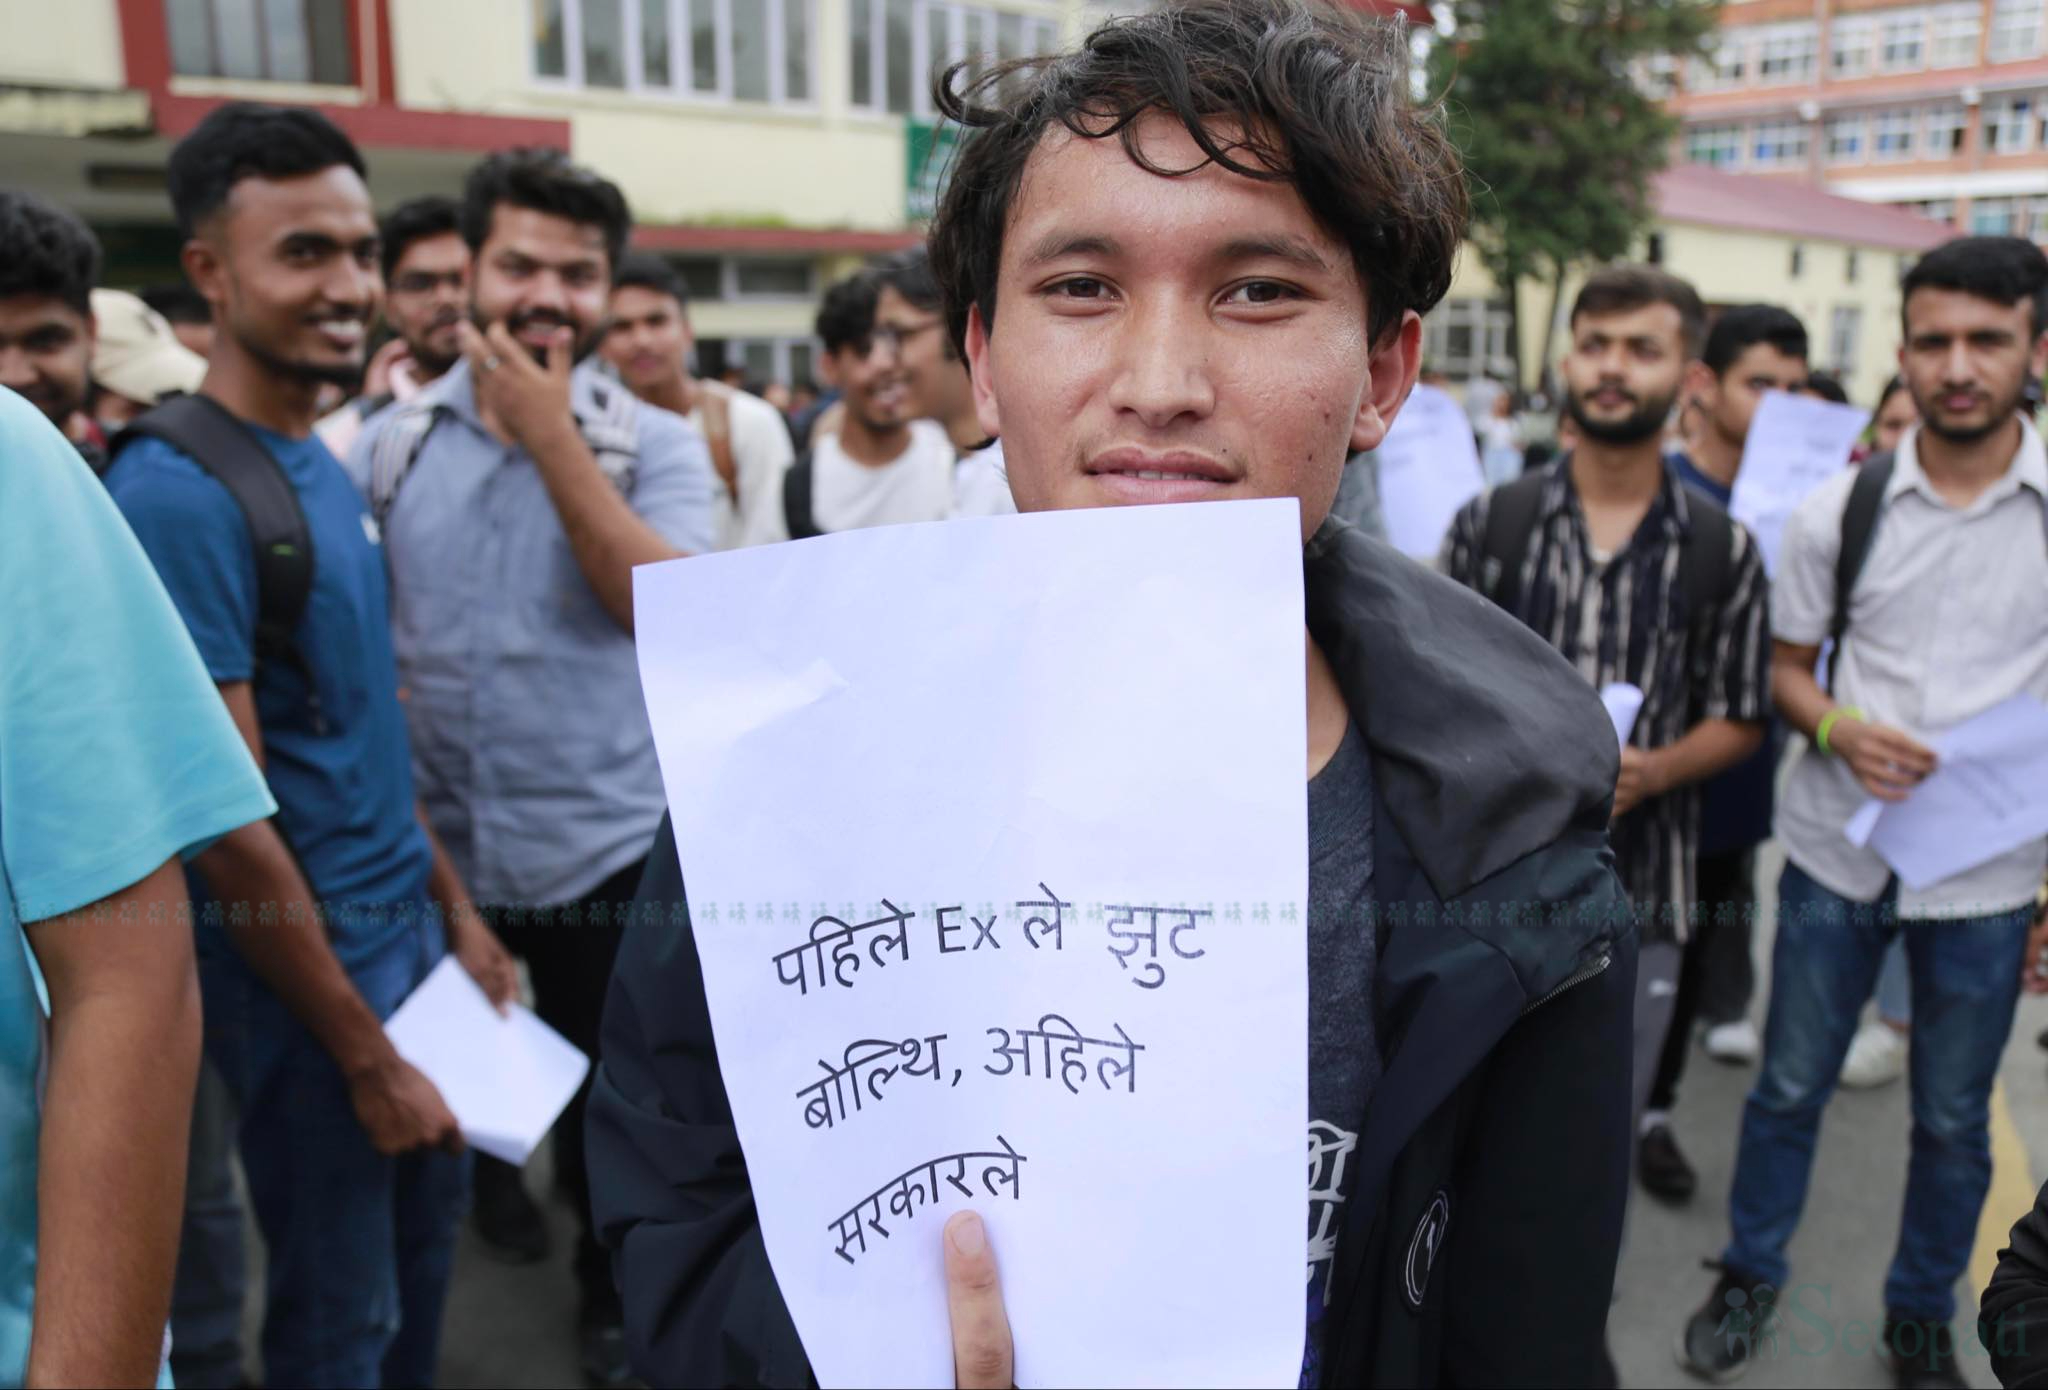 पहिले Ex ले झुट
बोल्थि, अहिले
सरकारले
Setopati